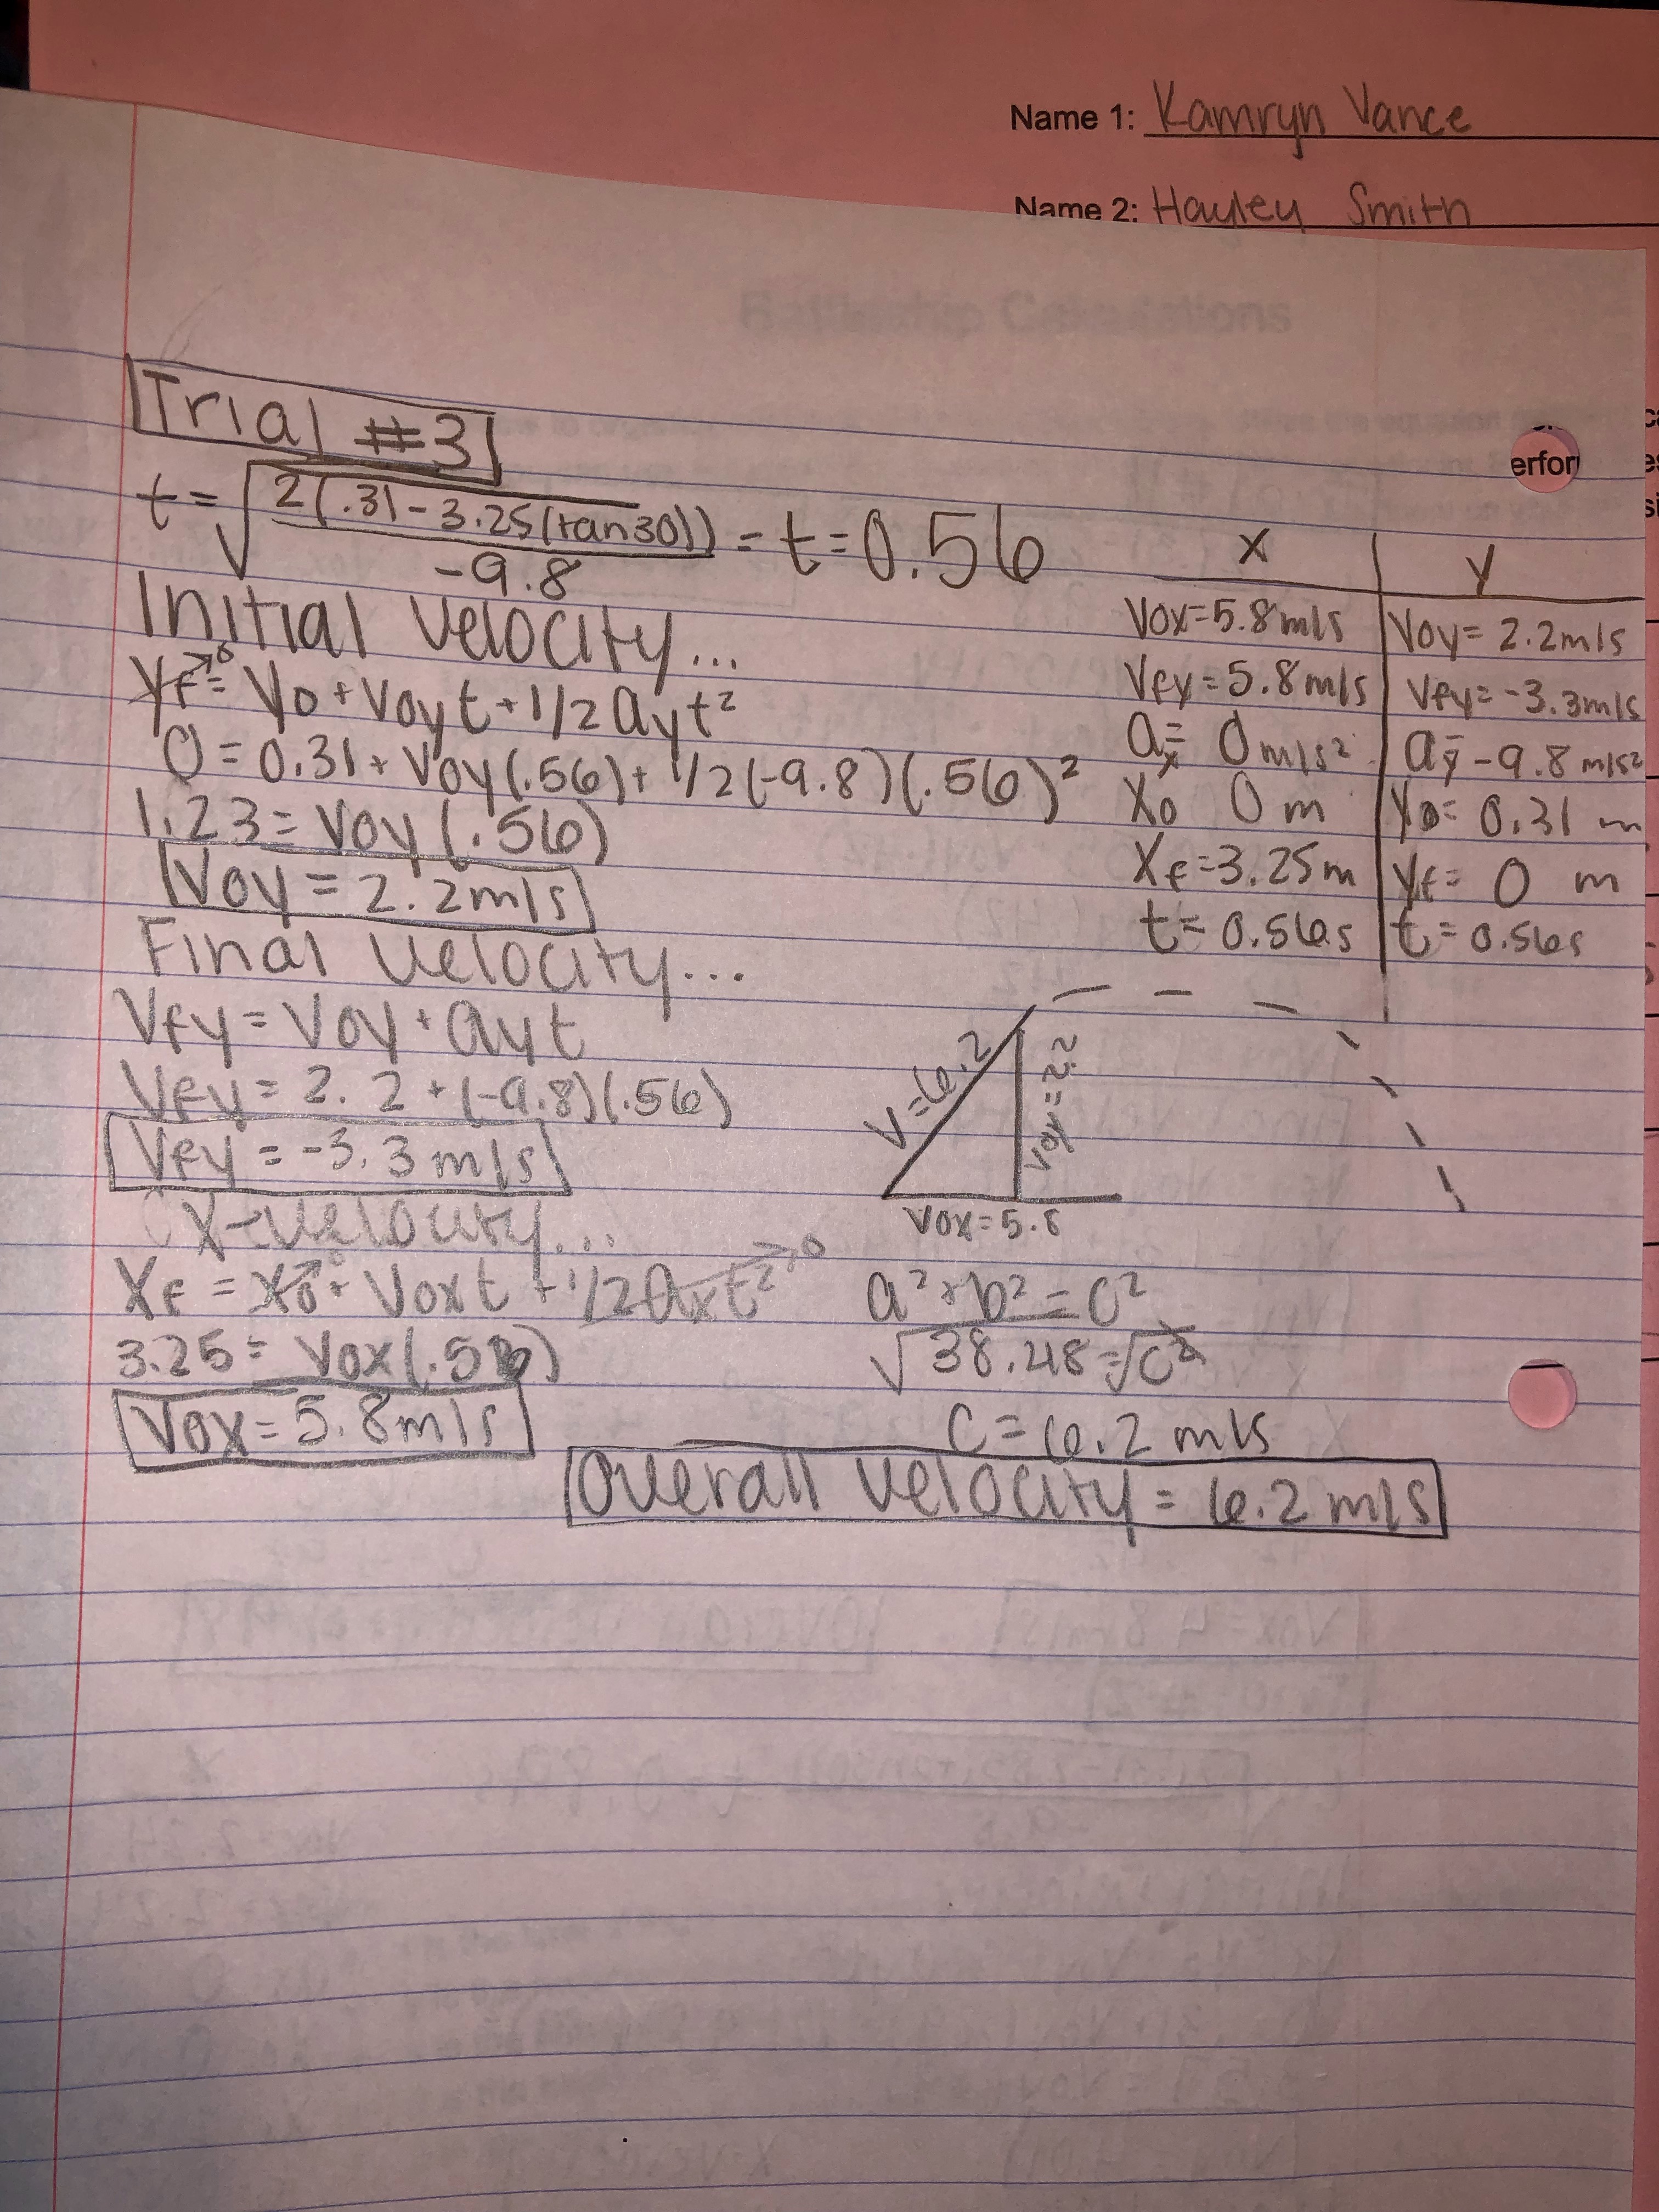 Name 1: Kamryn Vance
Name 2: Hayley Smith
erfor
Trial #3
t = √2(.31 - 3.25(tan30)) = t = 0.56
-9.8
Initial Velocity...
yf = y0 + V0yt + 1/2 ayt²
0 = 0.31 + V0y(.56) + 1/2(-9.8)(.56)²
1.23 = V0y(.56)
V0y = 2.2 m/s
Final Velocity...
Vfy = V0y + ayt
Vfy = 2.2 + (-9.8)(.56)
Vfy = -3.3 m/s
X-velocity...
Xf = X0→0 + V0xt + 1/2axt²→0
3.25 = V0x(.56)
V0x = 5.8 m/s
X Y
V0x=5.8m/s V0y= 2.2m/s
Vfy=5.8m/s Vfy=-3.3m/s
ax= 0 m/s² ay= -9.8 m/s²
X0 0 m y0= 0.31 m
Xf=3.25m yf= 0 m
t= 0.56s t= 0.56s
V=6.2
V0y = 2.2
V0x=5.8
a²+b² = c²
√38.48 = √c²
C = 6.2 m/s
Overall velocity = 6.2 m/s